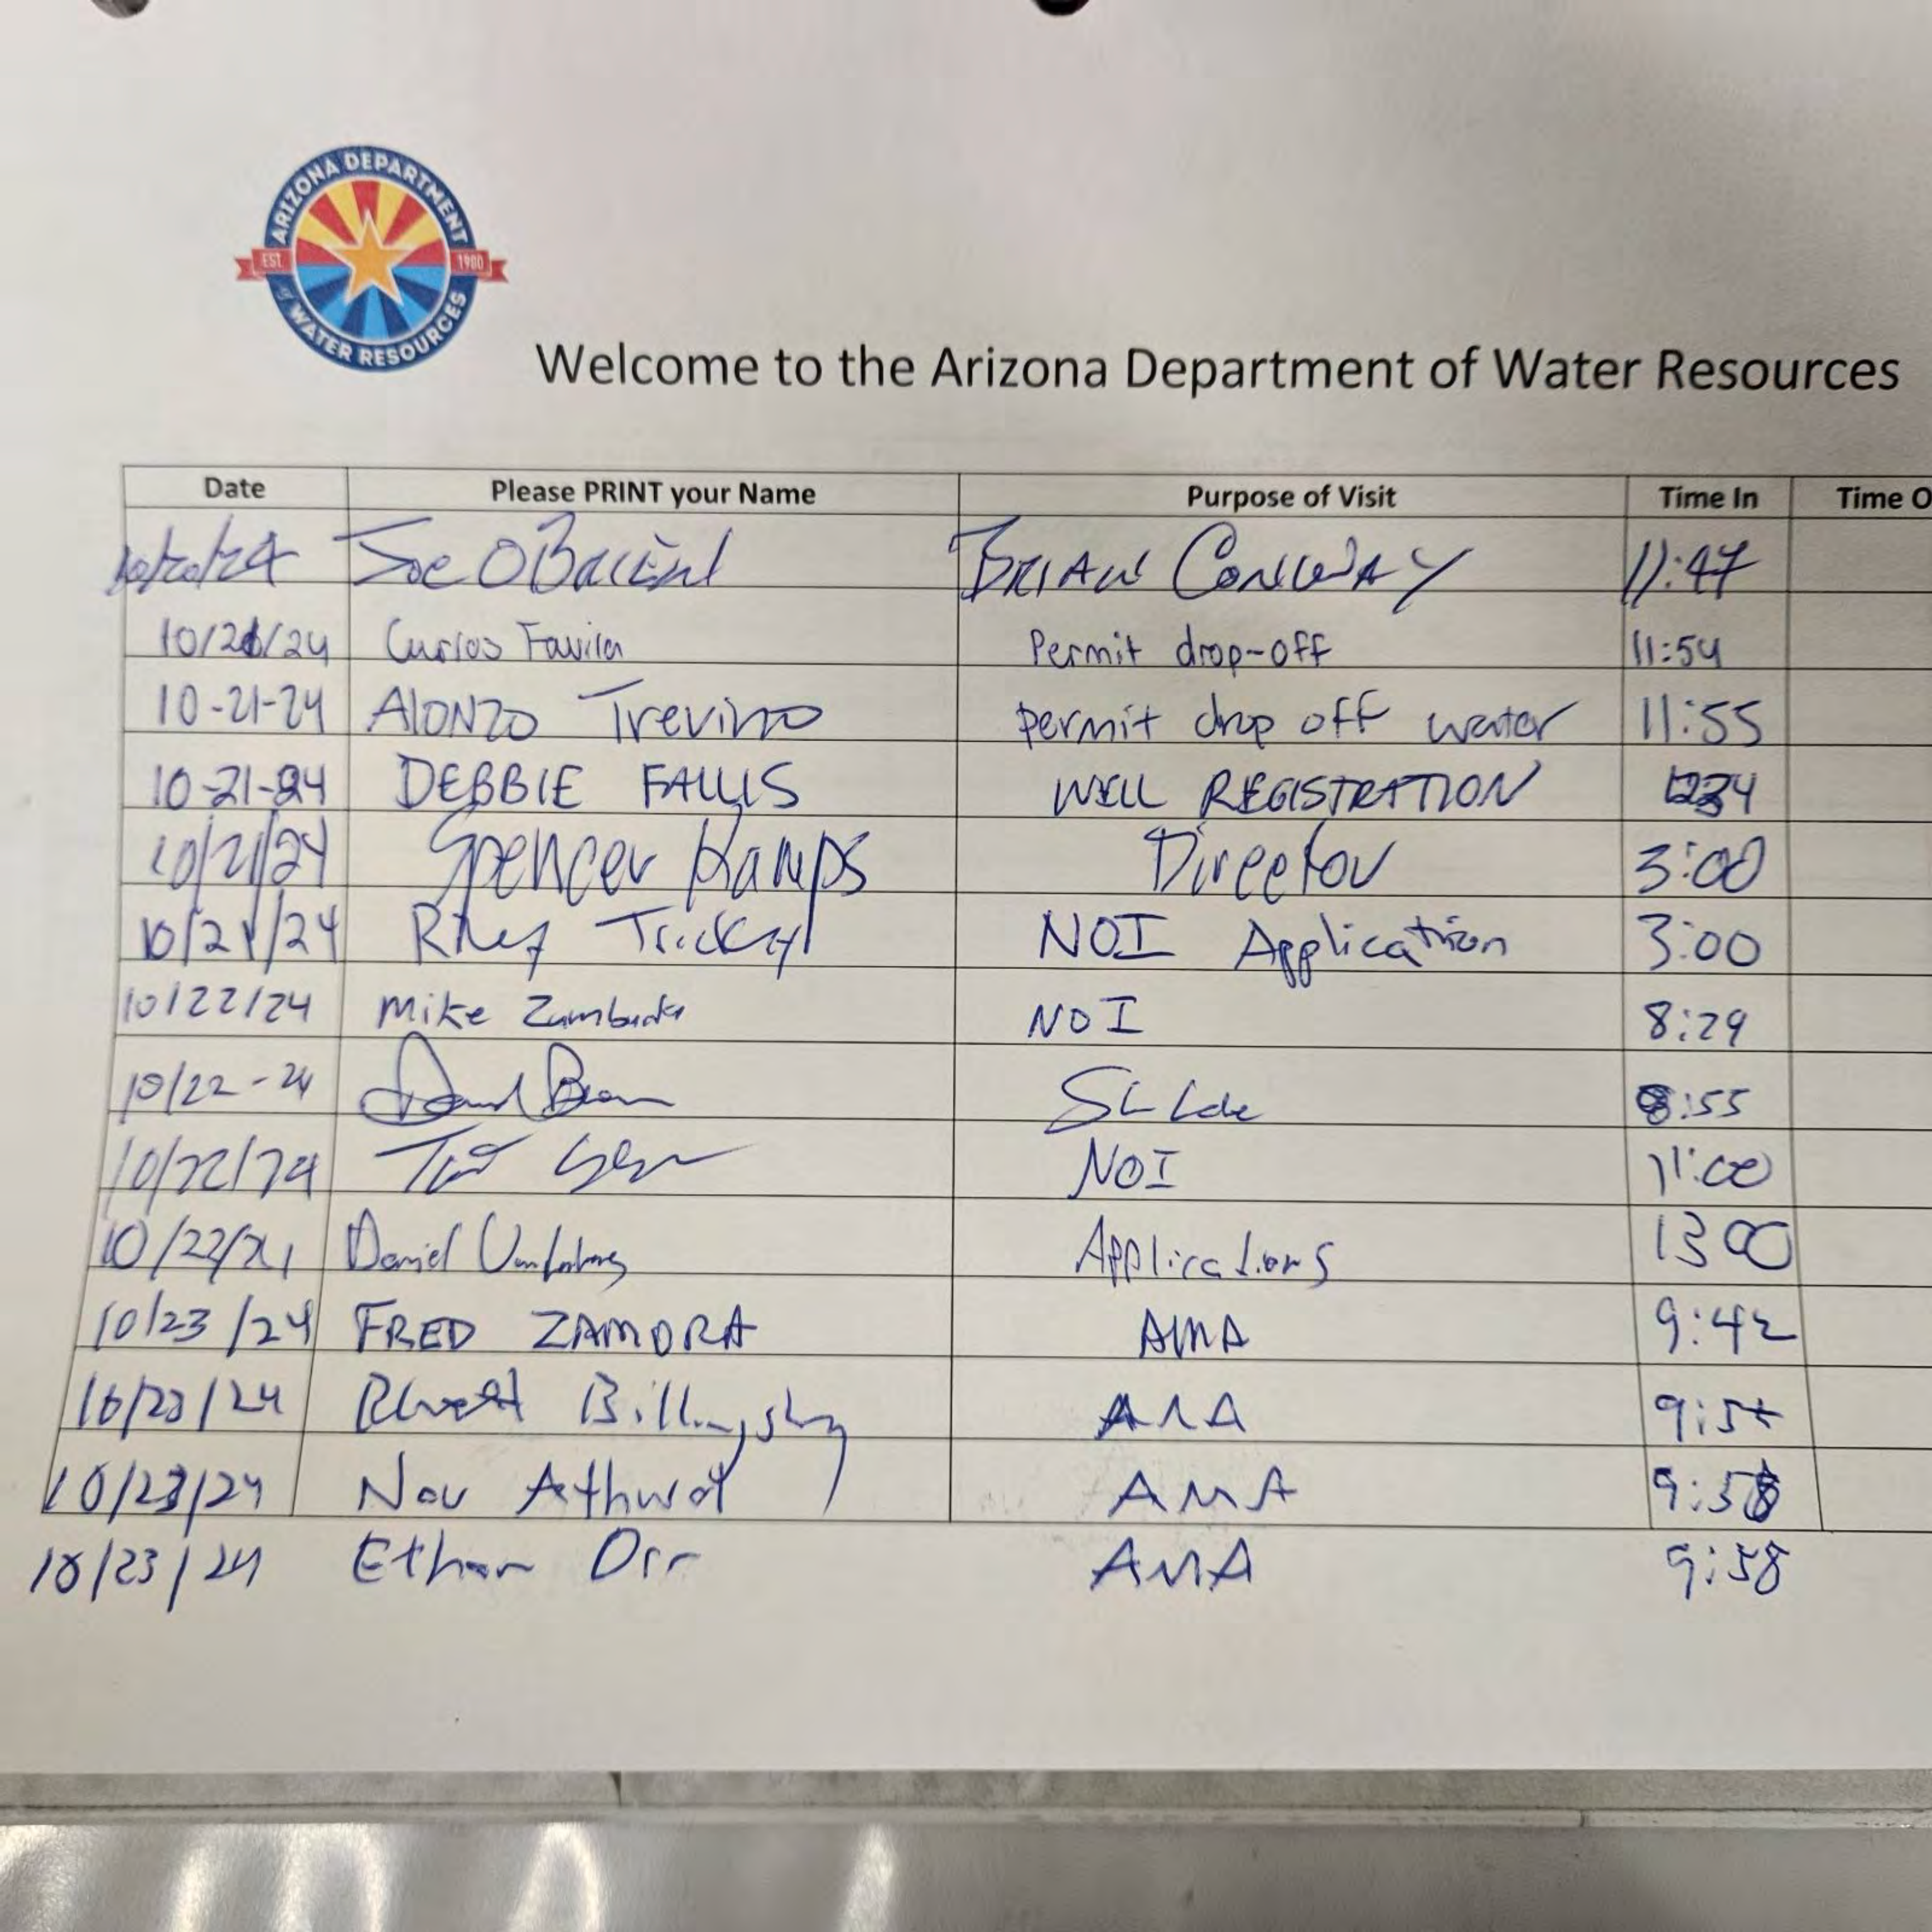 ARIZONA DEPARTMENT
EST 1980
of WATER RESOURCES
Welcome to the Arizona Department of Water Resources
Date Please PRINT your Name Purpose of Visit Time In Time O
Joe BRIAN CONWAY 11:47
10/21/24 Carlos Favila Permit drop-off 11:54
10-21-24 AlONZO Trevino permit drop off water 11:55
10-21-24 DEBBIE FALLIS WELL REGISTRATION 1234
10/21/24 Spencer Kamps Director 3:00
10/21/24 Riley Trickey NOI Application 3:00
10/22/24 Mike NOI 8:29
10/22-24 8:55
10/22/24 NOI 11:00
10/22/24 Daniel Applications 1300
10/23/24 FRED ZAMORA AMA 9:42
10/23/24 Billingsley AMA
10/23/24 Athwal AMA 9:58
10/23/24 Ethan Orr AMA 9:58